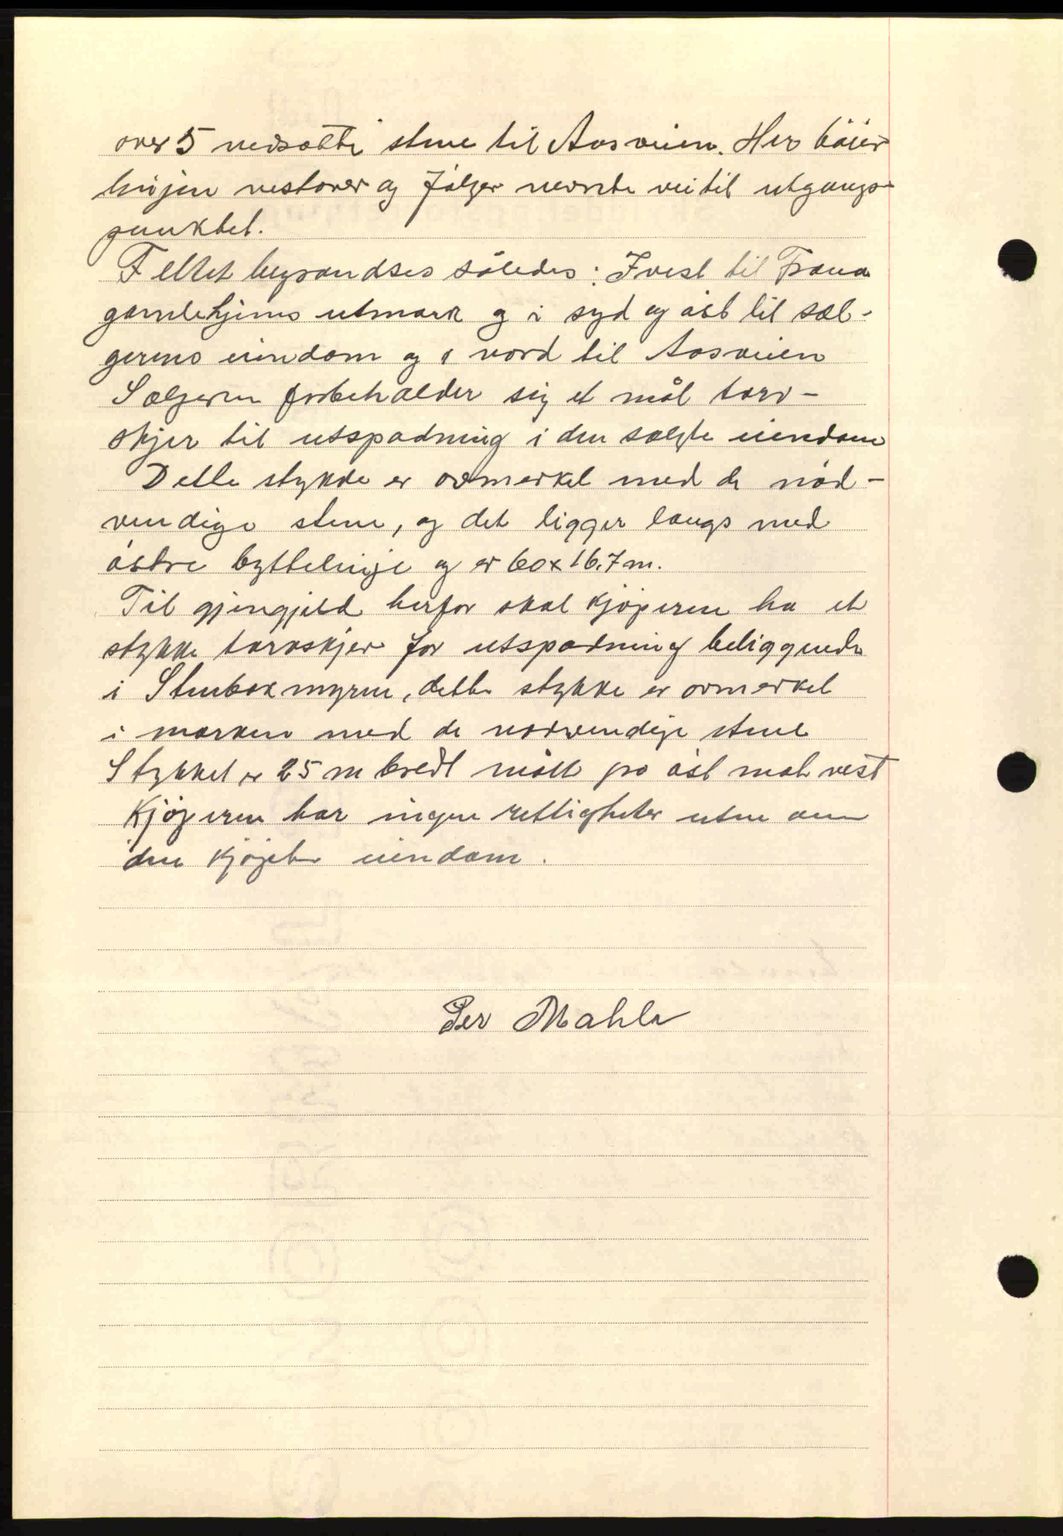 over 5 nedsatte stene til Aasveien. Her bøier
linjen vestover og følger nevnte vei til utgangs-
punktet.
Feltet begrændses således: I vest til Fræna
gamlehjems utmark og i syd og øst til sæl-
gerens eiendom og i nord til Aasveien
Sælgeren forbeholder sig et mål torv-
skjer til utspadning i den solgte eiendom
Dette stykke er opmerket med de nød-
vendige stene, og det ligger langs med
østre byttelinje og er 60 x 16,7 m.
Til gjengjeld herfor skal kjøperen ha et
stykke torvskjer for utspadning beliggende
i Stenbekmyren, dette stykke er opmerket
i marken med de nødvendige stene
Stykket er 25 m bredt målt fra øst mot vest
Kjøperen har ingen rettigheter uten om
den kjøpte eiendom.
Per Mahle